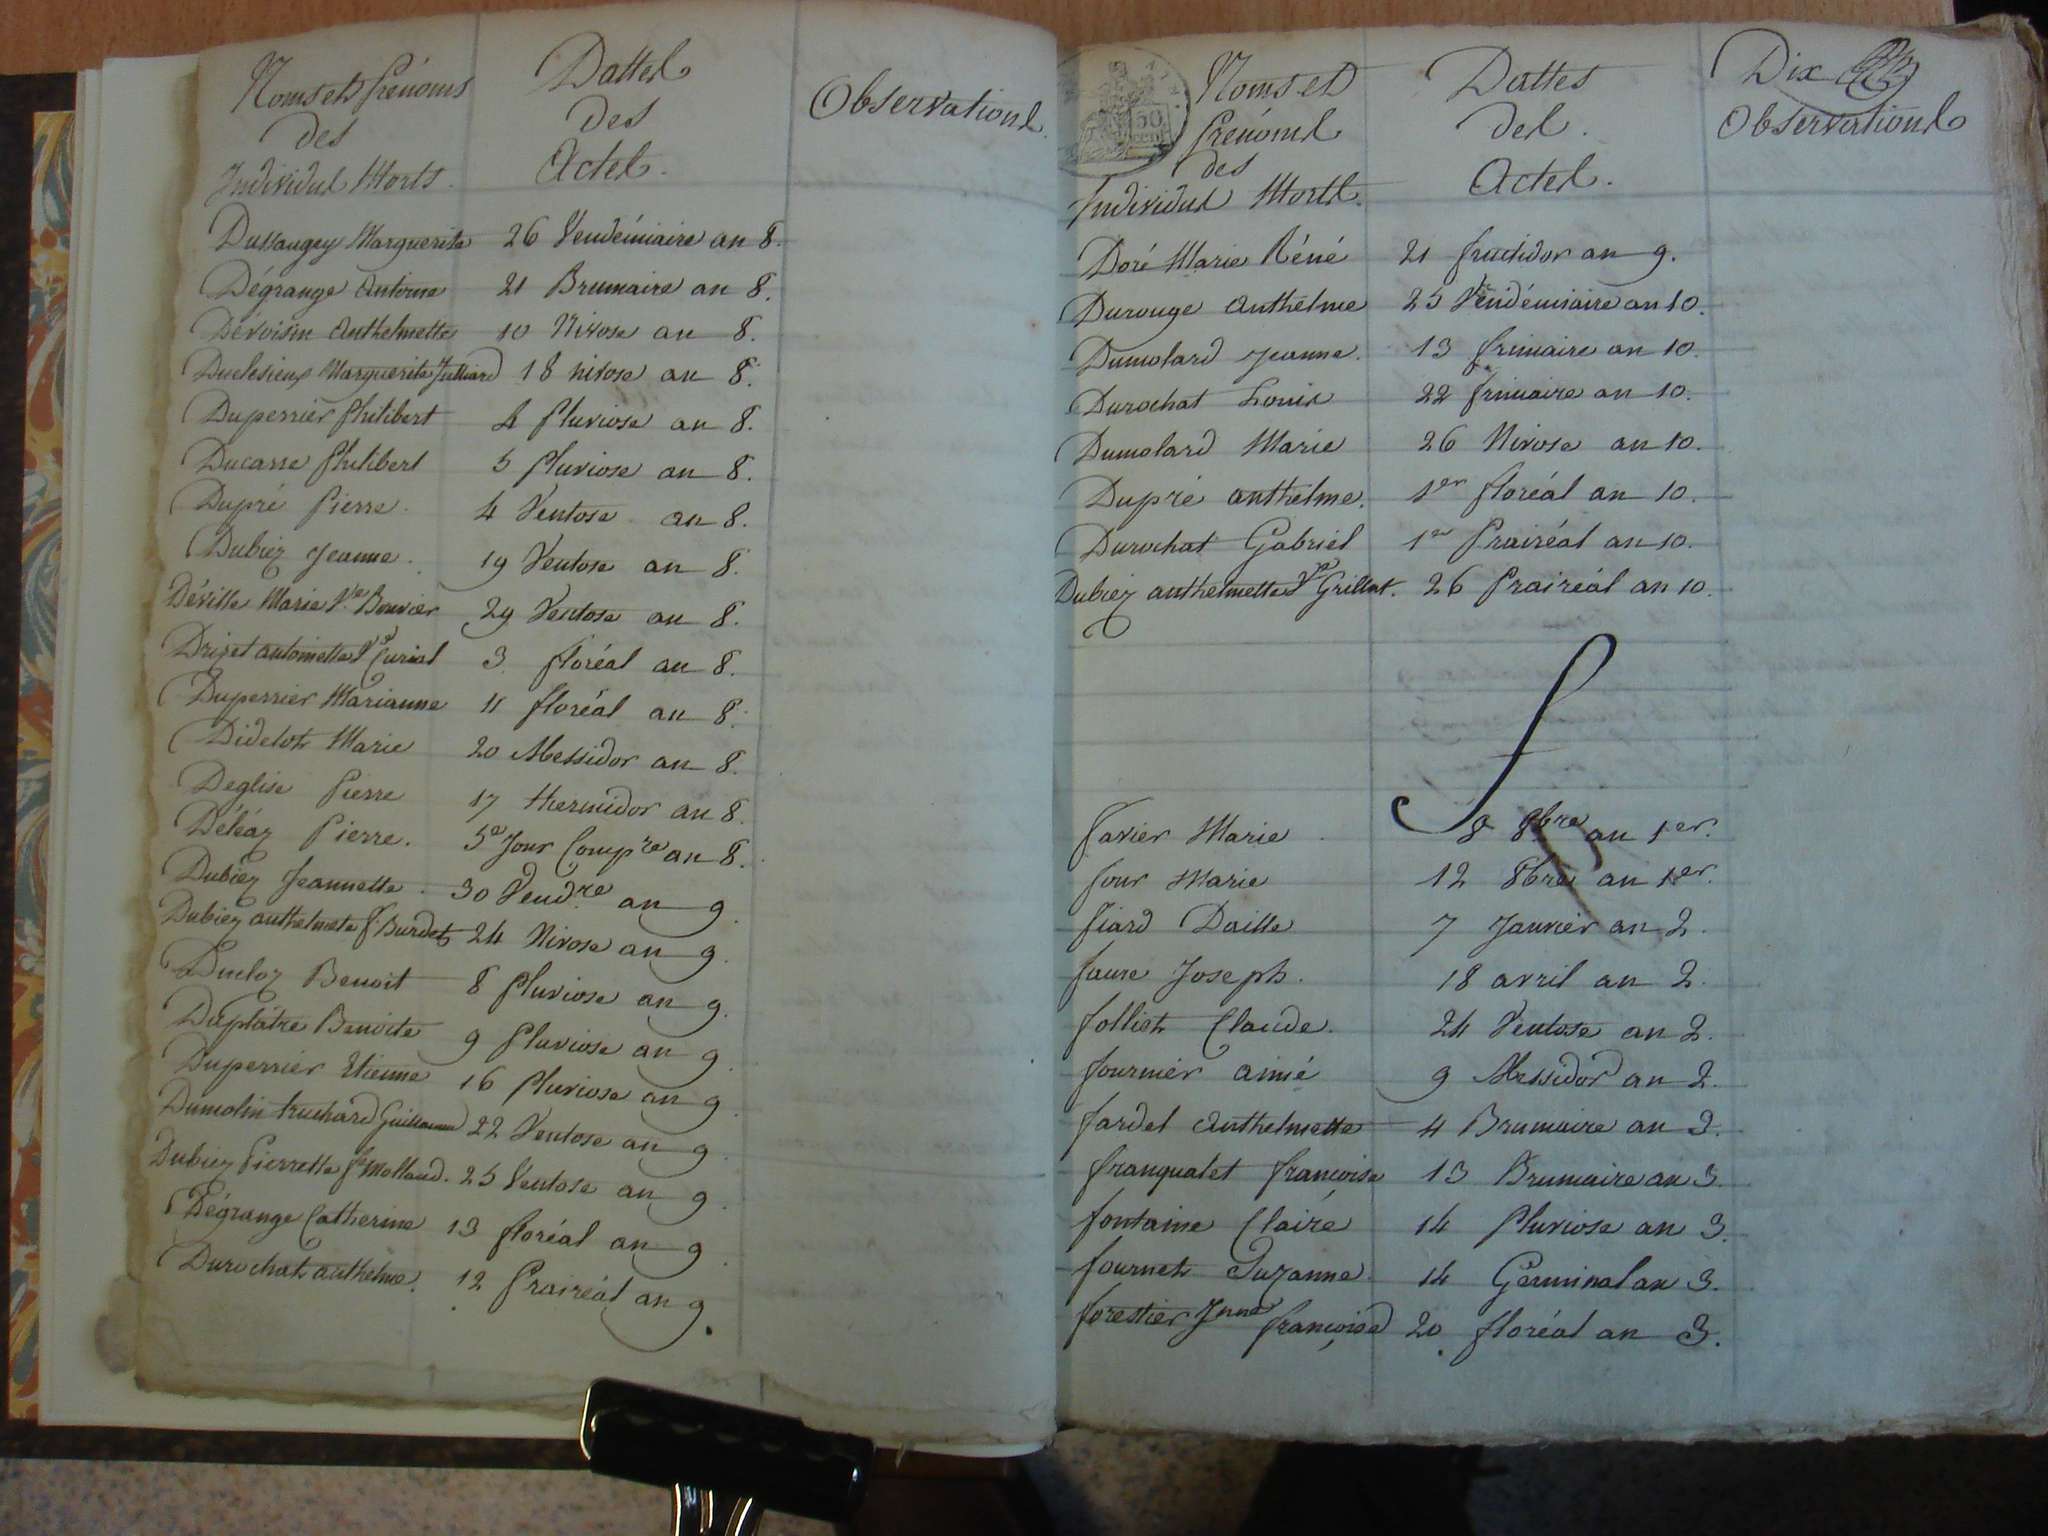 Noms et Prénoms
des
Individus Morts.
Dattes
des
Actes.
Observations
Dussaugey Marguerite 26 Vendémiaire an 8.
Dégrange Antoine 21 Brumaire an 8.
Dévoisin Anthelmette 10 Nivose an 8.
Duclésieux Marguerite Julliard 18 nivose an 8.
Duperrier Philibert 4 Pluviose an 8.
Ducasse Philibert 5 Pluviose an 8.
Dupré Pierre. 4 Ventose an 8.
Dubiez Jeanne. 19 Ventose an 8.
Déville Marie Ve Bouvier 29 Ventose an 8.
Drizet antoinette Ve Curial 3 floréal an 8.
Duperrier Marianne 11 floréal an 8.
Didelot Marie 20 Messidor an 8.
Deglise Pierre 17 thermidor an 8.
Déléaz Pierre. 5e Jour Compre an 8.
Dubiez Jeannette. 30 Vendre an 9.
Dubiez anthelmete f. Burdet 24 Nivose an 9.
Ducloz Benoit 8 Pluviose an 9.
Duplatre Benoite 9 Pluviose an 9.
Duperrier Etienne 16 Pluviose an 9.
Dumolin Guillaume 22 Ventose an 9.
Dubiez Pierrette fe Molland. 25 Ventose an 9.
Dégrange Catherine 13 floréal an 9.
Durochat anthelme. 12 Prairéal an 9.
Noms et
Prénoms
des
Individus Morts.
Dattes
des.
Actes.
Dix
Observations
50
Doré Marie Réné 21 fructidor an 9.
Durouge anthelme 25 Vendémiaire an 10.
Dumolard Jeanne. 13 frimaire an 10.
Durochat Louis 22 frimaire an 10.
Dumolard Marie 26 Nivose an 10.
Dupré anthelme. 1er floréal an 10.
Durochat Gabriel 1er Prairéal an 10.
Dubiez anthelmette Ve Grillat. 26 Prairéal an 10.
f
favier Marie 8 8bre an 1er.
four Marie 12 8bre an 1er.
fiard Daille 7 Janvier an 2.
faure Joseph. 18 avril an 2.
folliet Claude. 24 Ventose an 2.
fournier aimé 9 Messidor an 2.
fardel Anthelmette 4 Brumaire an 3.
franquatet françoise 13 Brumaire an 3.
fontaine Claire 14 Pluviose an 3.
fournet Suzanne. 14 Germinal an 3.
forestier Jnne françoise 20 floréal an 3.